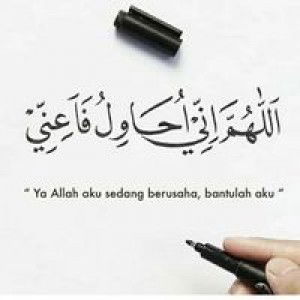 اَللّٰهُمَّ اِنِّيْ اُحَاوِلُ فَاَعِنِّيْ
“ Ya Allah aku sedang berusaha, bantulah aku “